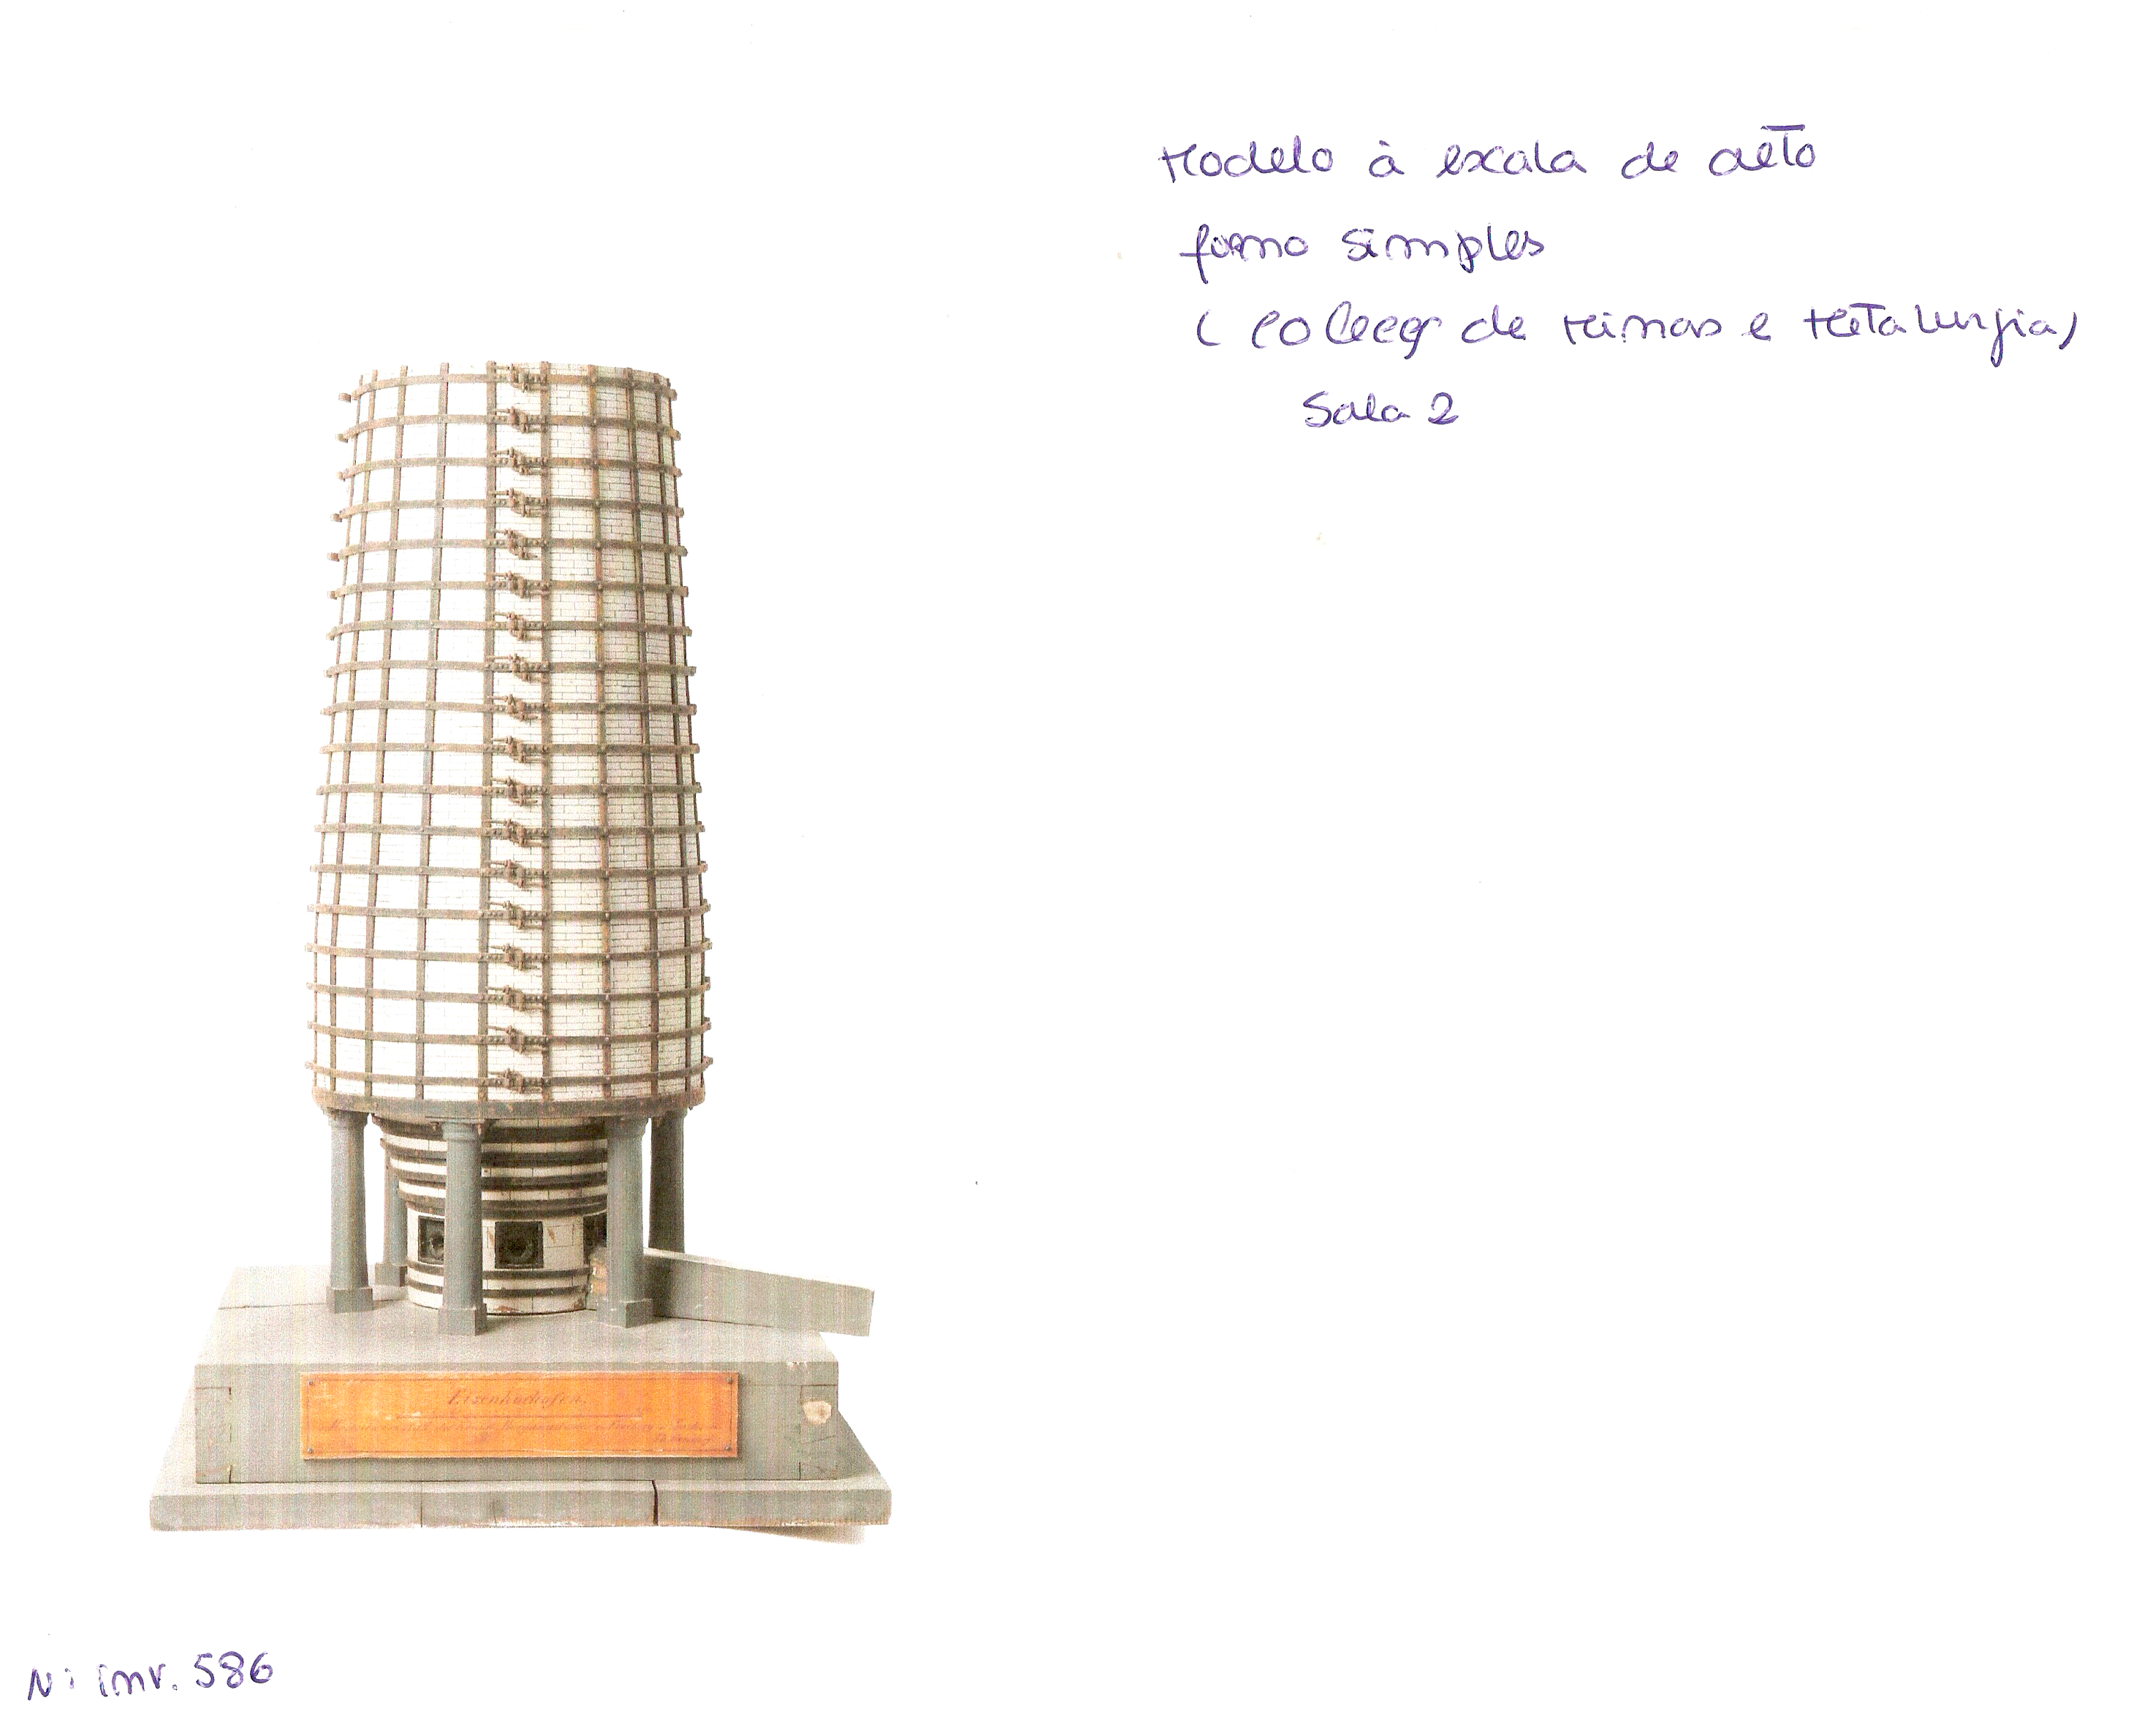 Modelo à escala de alto
forno simples
(colecç de Minas e Metalurgia)
Sala 2
Eisenhochofen.
Nº inv. 586